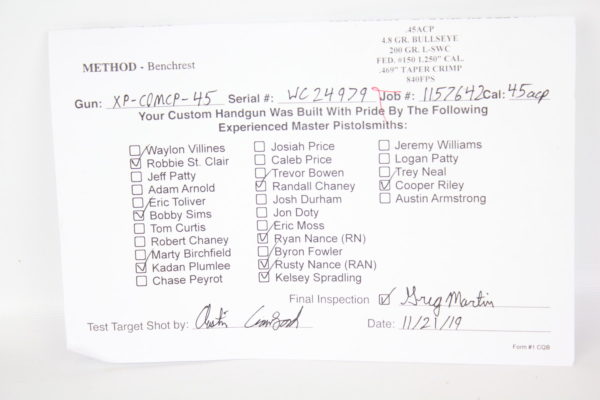 .45ACP
4.8 GR. BULLSEYE
200 GR. L-SWC
FED. #150 1.250" CAL.
.469" TAPER CRIMP
840FPS
METHOD - Benchrest
Gun: XP-COMCP-45 Serial #: WC24979 Job #: 1157642 Cal: 45acp
Your Custom Handgun Was Built With Pride By The Following
Experienced Master Pistolsmiths:
Waylon Villines
Robbie St. Clair
Jeff Patty
Adam Arnold
Eric Toliver
Bobby Sims
Tom Curtis
Robert Chaney
Marty Birchfield
Kadan Plumlee
Chase Peyrot
Josiah Price
Caleb Price
Trevor Bowen
Randall Chaney
Josh Durham
Jon Doty
Eric Moss
Ryan Nance (RN)
Byron Fowler
Rusty Nance (RAN)
Kelsey Spradling
Jeremy Williams
Logan Patty
Trey Neal
Cooper Riley
Austin Armstrong
Final Inspection Greg Martin
Test Target Shot by: Austin
Date: 11/21/19
Form #1 CQB